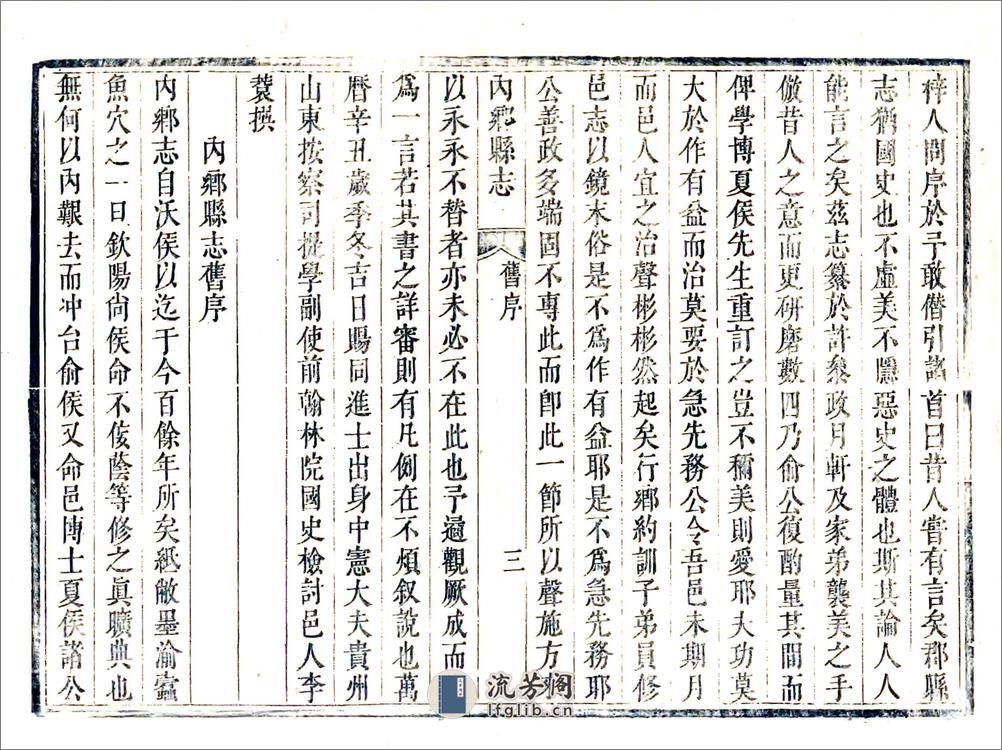 梓人問序於予敢僭引諸首曰昔人嘗有言矣郡縣
志猶國史也不虛美不隱惡史之體也斯其論人人
能言之矣茲志纂於許叅政月軒及家弟襲美之手
倣昔人之意而更研磨數四乃俞公復酌量其間而
俾學博夏侯先生重訂之豈不稱美則愛耶夫功莫
大於作有益而治莫要於急先務公令吾邑未期月
而邑人宜之治聲彬彬然起矣行鄉約訓子弟員修
邑志以鏡末俗是不爲作有益耶是不爲急先務耶
公善政多端固不專此而卽此一節所以聲施方
內鄉縣志
舊序
三
以永永不替者亦未必不在此也予逼觀厥成而
爲一言若其書之詳審則有凡例在不煩叙說也萬
曆辛丑歲季冬吉日賜同進士出身中憲大夫貴州
山東按察司提學副使前翰林院國史檢討邑人李
蓘撰
內鄉縣志舊序
內鄉志自沃侯以迄于今百餘年所矣紙敝墨渝蠹
魚穴之一日欽陽尚侯命不佞蔭等修之眞曠典也
無何以內艱去而冲台俞侯又命邑博士夏侯諸公
流芳阁
lfglib.cn